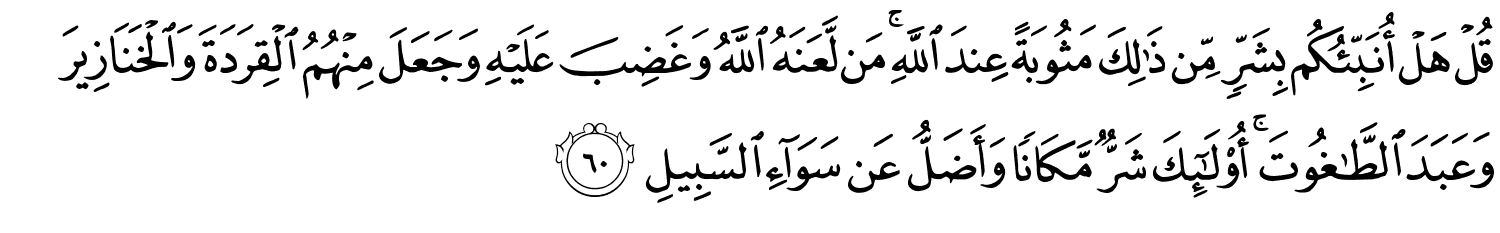 قُلۡ هَلۡ أُنَبِّئُكُم بِشَرّٖ مِّن ذَٰلِكَ مَثُوبَةً عِندَ ٱللَّهِۚ مَن لَّعَنَهُ ٱللَّهُ وَغَضِبَ عَلَيۡهِ وَجَعَلَ مِنۡهُمُ ٱلۡقِرَدَةَ وَٱلۡخَنَازِيرَ
وَعَبَدَ ٱلطَّٰغُوتَۚ أُوْلَٰٓئِكَ شَرّٞ مَّكَانٗا وَأَضَلُّ عَن سَوَآءِ ٱلسَّبِيلِ ٦٠